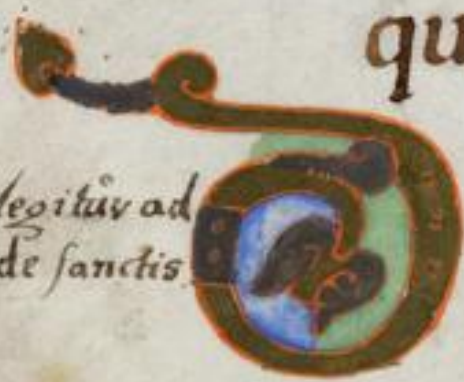 qu
legitur ad
de sanctis